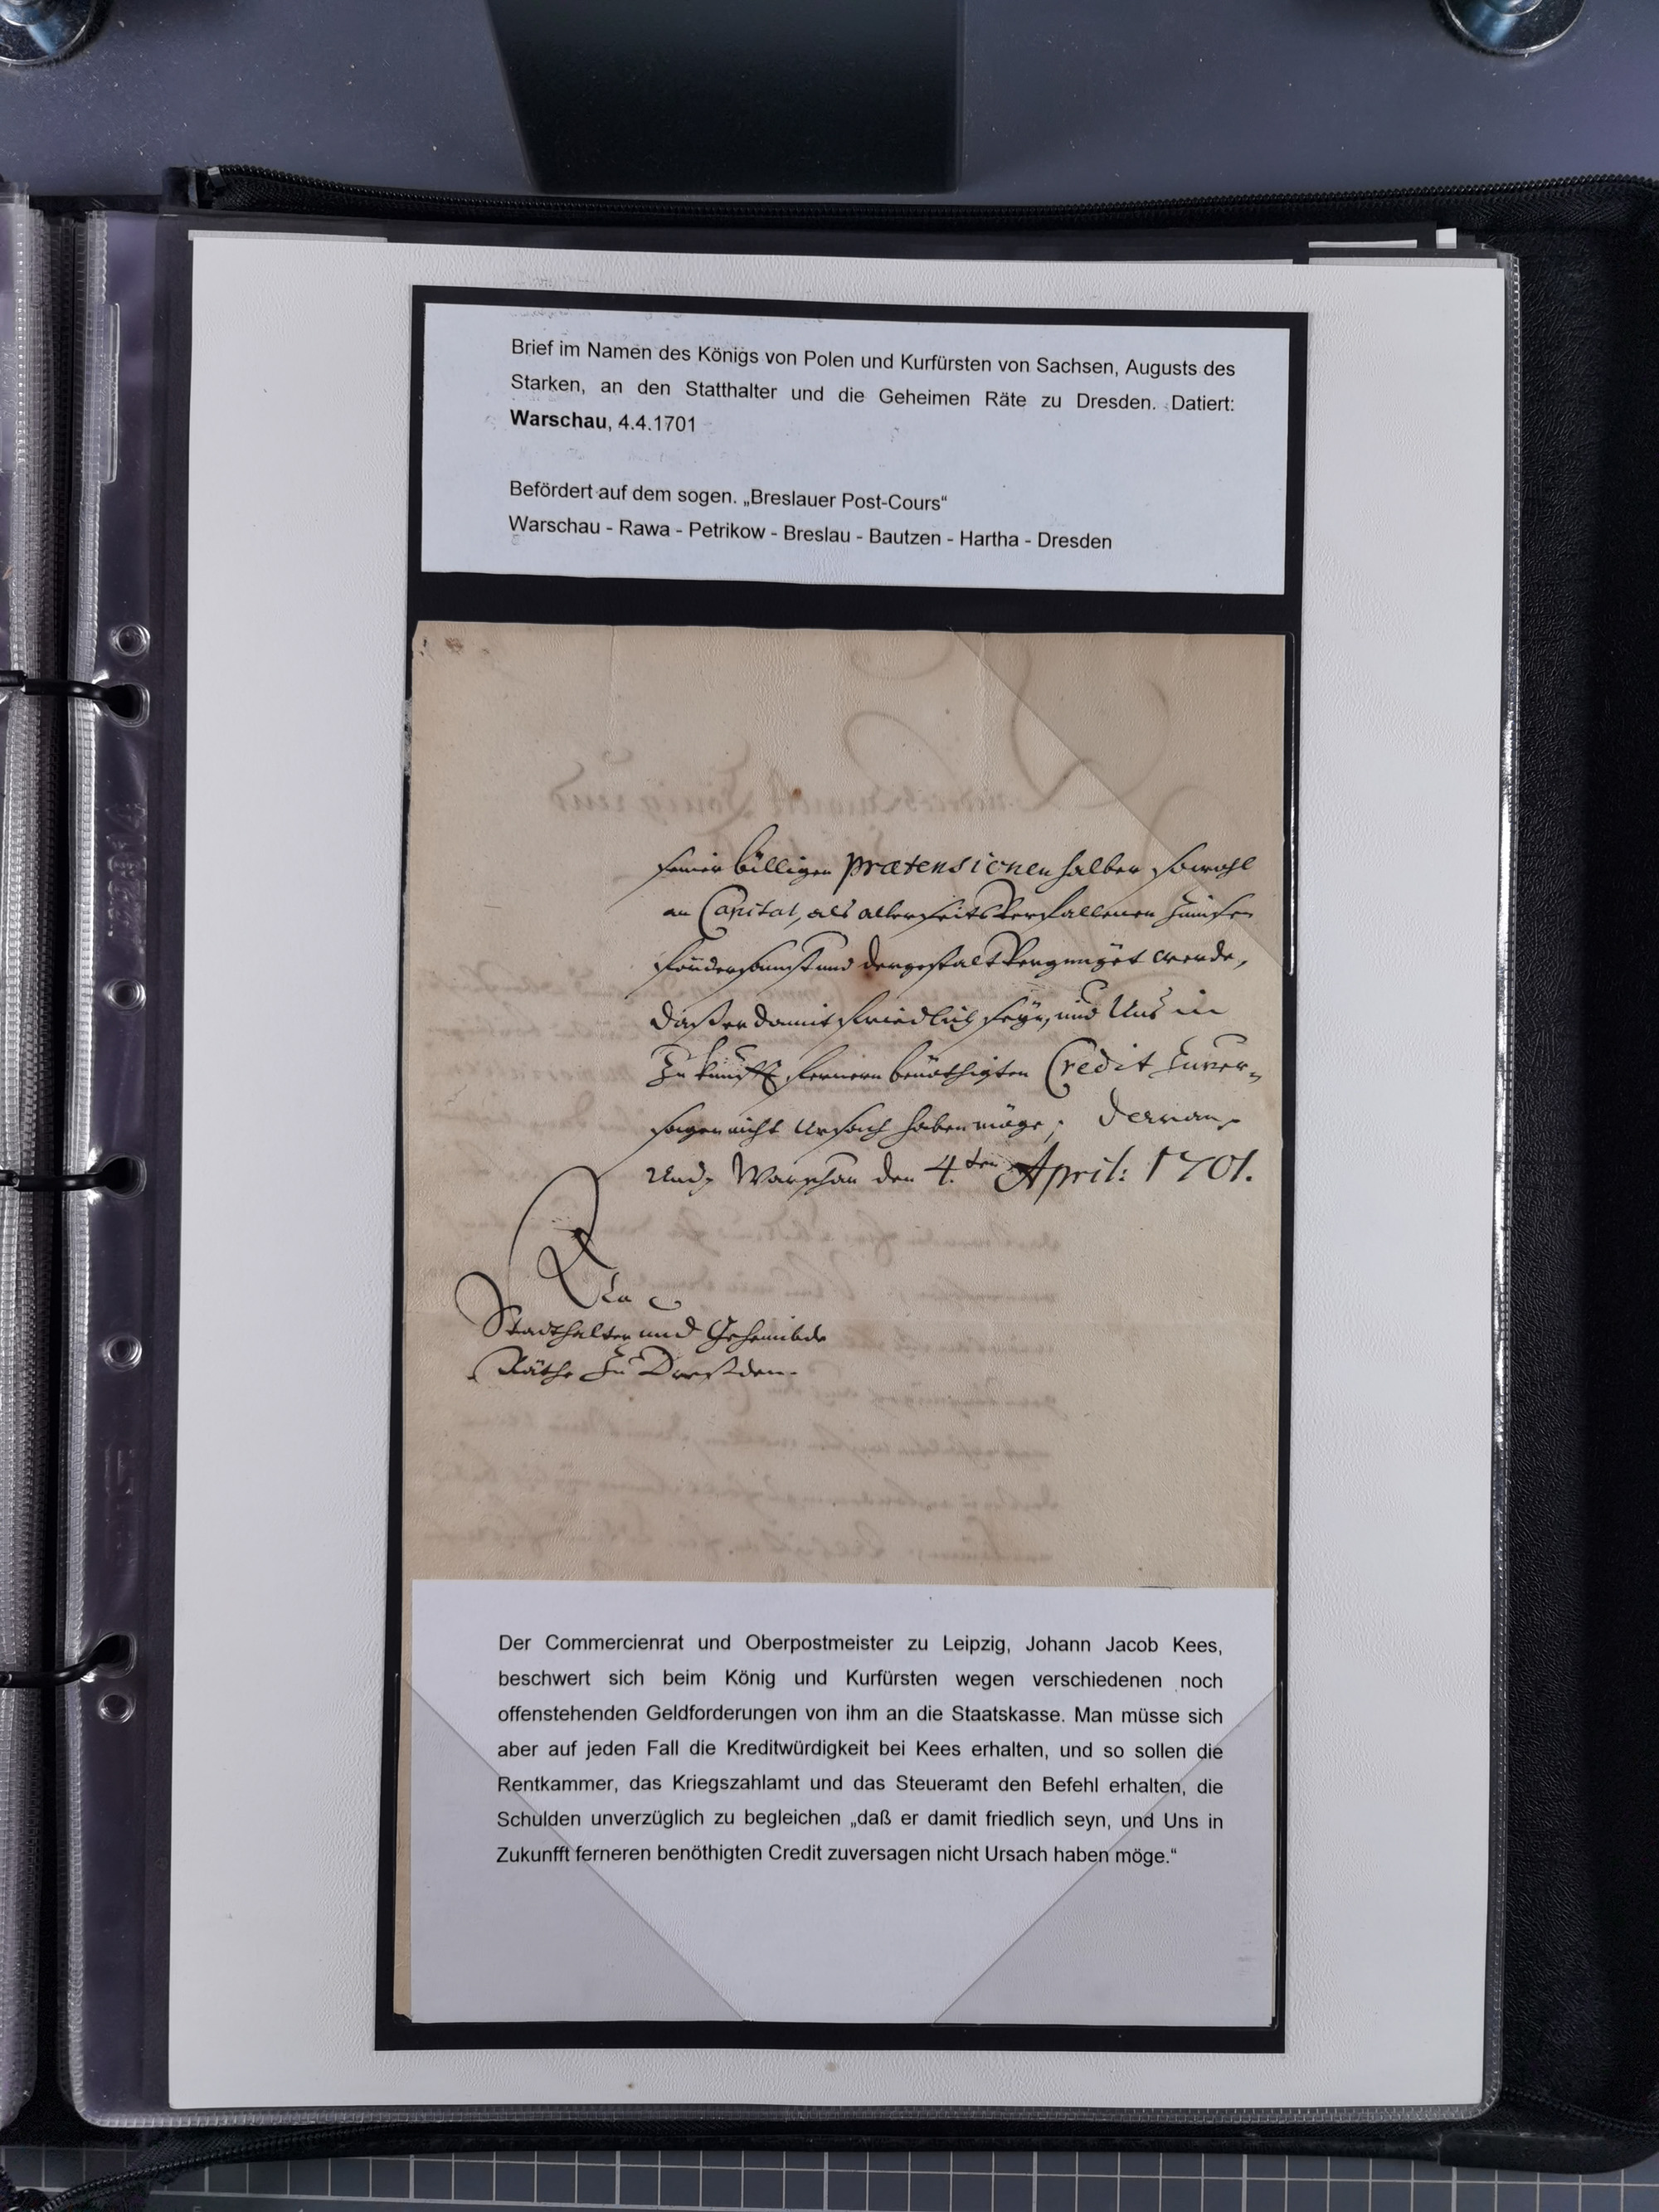 Brief im Namen des Königs von Polen und Kurfürsten von Sachsen, Augusts des
Starken, an den Statthalter und die Geheimen Räte zu Dresden. Datiert:
Warschau, 4.4.1701
Befördert auf dem sogen. „Breslauer Post-Cours“
Warschau - Rawa - Petrikow - Breslau - Bautzen - Hartha - Dresden
seiner billigen prætensionen halber sowohl
an Capital, als allerseits verfallenen Zinnsen
förder­samst und dergestalt vergnüget werde,
daß er damit friedlich seyn, und Uns in
Zukunfft fernern benöthigten Credit zuver-
sagen nicht Ursach haben möge;
Warschau den 4.ten April: 1701.
An
Stadthalter und Geheimbde
Räthe zu Dreßden.
Der Commercienrat und Oberpostmeister zu Leipzig, Johann Jacob Kees,
beschwert sich beim König und Kurfürsten wegen verschiedenen noch
offenstehenden Geldforderungen von ihm an die Staatskasse. Man müsse sich
aber auf jeden Fall die Kreditwürdigkeit bei Kees erhalten, und so sollen die
Rentkammer, das Kriegszahlamt und das Steueramt den Befehl erhalten, die
Schulden unverzüglich zu begleichen „daß er damit friedlich seyn, und Uns in
Zukunfft ferneren benöthigten Credit zuversagen nicht Ursach haben möge.“